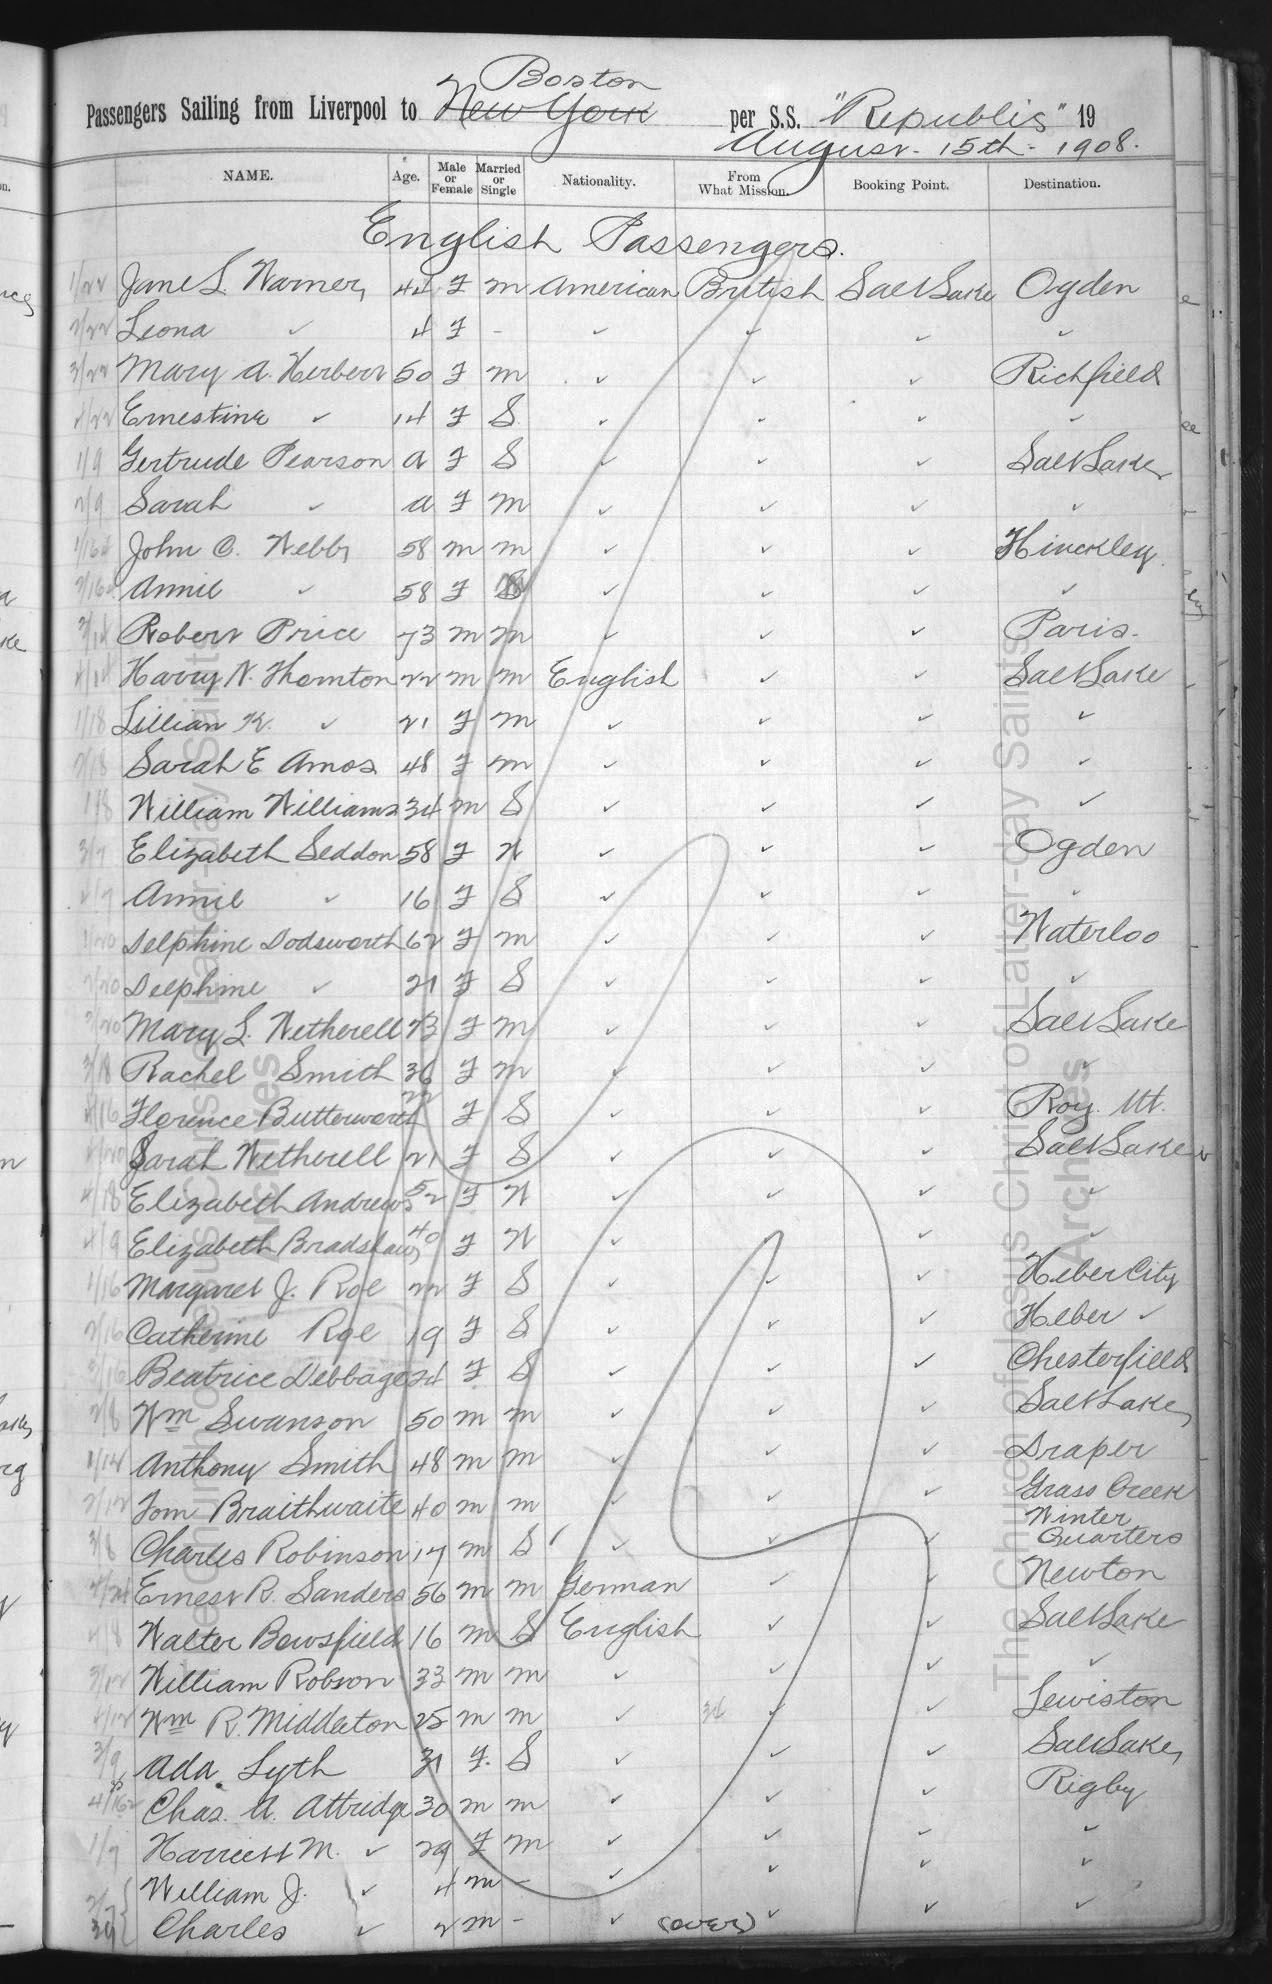 Boston
Passengers Sailing from Liverpool to New York per S.S. "Republic" 19
August 15th 1908.
NAME. Age. Male or Female Married or Single Nationality. From What Mission. Booking Point. Destination.
English Passengers.
1/22 Jane L. Warner, 44 F M American British Salt Lake Ogden
2/22 Leona ✓ 4 F - ✓ ✓ ✓ ✓
3/22 Mary A. Herbert 50 F M ✓ ✓ ✓ Richfield
4/22 Ernestine ✓ 14 F S ✓ ✓ ✓ ✓
1/9 Gertrude Pearson A F S ✓ ✓ ✓ Salt Lake
2/9 Sarah ✓ A F M ✓ ✓ ✓ ✓
John C. Webb, 58 M M ✓ ✓ ✓ Hinckley
Annie ✓ 58 F ✓ ✓ ✓ ✓
Robert Price 73 M M ✓ ✓ ✓ Paris.
Harry N. Thornton 22 M M English ✓ ✓ Salt Lake
1/18 Lillian K. ✓ 21 F M ✓ ✓ ✓ ✓
2/18 Sarah E Amos 48 F M ✓ ✓ ✓ ✓
1/8 William Williams 34 M S ✓ ✓ ✓ ✓
3/7 Elizabeth Seddon 58 F W ✓ ✓ ✓ Ogden
4/7 Annie ✓ 16 F S ✓ ✓ ✓ ✓
1/20 Delphine Dodsworth 62 F M ✓ ✓ ✓ Waterloo
2/20 Delphine ✓ 21 F S ✓ ✓ ✓ ✓
3/20 Mary L. Wetherell F M ✓ ✓ ✓ Salt Lake
3/18 Rachel Smith 36 F M ✓ ✓ ✓ ✓
4/16 Florence Butterworth 22 F S ✓ ✓ ✓ Roy. Ut.
4/20 Sarah Wetherell 21 F S ✓ ✓ ✓ Salt Lake
4/18 Elizabeth Andrews 52 F W ✓ ✓ ✓ ✓
4/9 Elizabeth Bradshaw 40 F W ✓ ✓ ✓
1/16 Margaret J. Roe 22 F S ✓ ✓ ✓ Heber City
2/16 Catherine Roe 19 F S ✓ ✓ ✓ Heber ✓
3/16 Beatrice Debbage 24 F S ✓ ✓ ✓ Chesterfield
2/8 Wm Swanson 50 M M ✓ ✓ ✓ Salt Lake,
1/12 Anthony Smith 48 M M ✓ ✓ ✓ Draper
2/12 Tom Braithwaite 40 M M ✓ ✓ ✓ Grass Creek
3/8 Charles Robinson 17 M S ✓ ✓ ✓ Winter Quarters
Ernest R. Sanders 56 M M German ✓ ✓ Newton
4/8 Walter Bowsfield 16 M S English ✓ ✓ Salt Lake
3/12 William Robson 33 M M ✓ ✓ ✓ ✓
4/12 Wm R. Middleton 25 M M ✓ ✓ ✓ Lewiston
3/9 Ada Lyth 31 F. S ✓ ✓ ✓ Salt Lake,
Chas. A. Attridge 30 M M ✓ ✓ ✓ Rigby
1/7 Harriett M. ✓ 29 F M ✓ ✓ ✓ ✓
2/7 William J. ✓ 4 M - ✓ ✓ ✓ ✓
Charles ✓ 2 M - ✓ (over) ✓ ✓ ✓
The Church of Jesus Christ of Latter-day Saints
Archives
The Church of Jesus Christ of Latter-day Saints
Archives